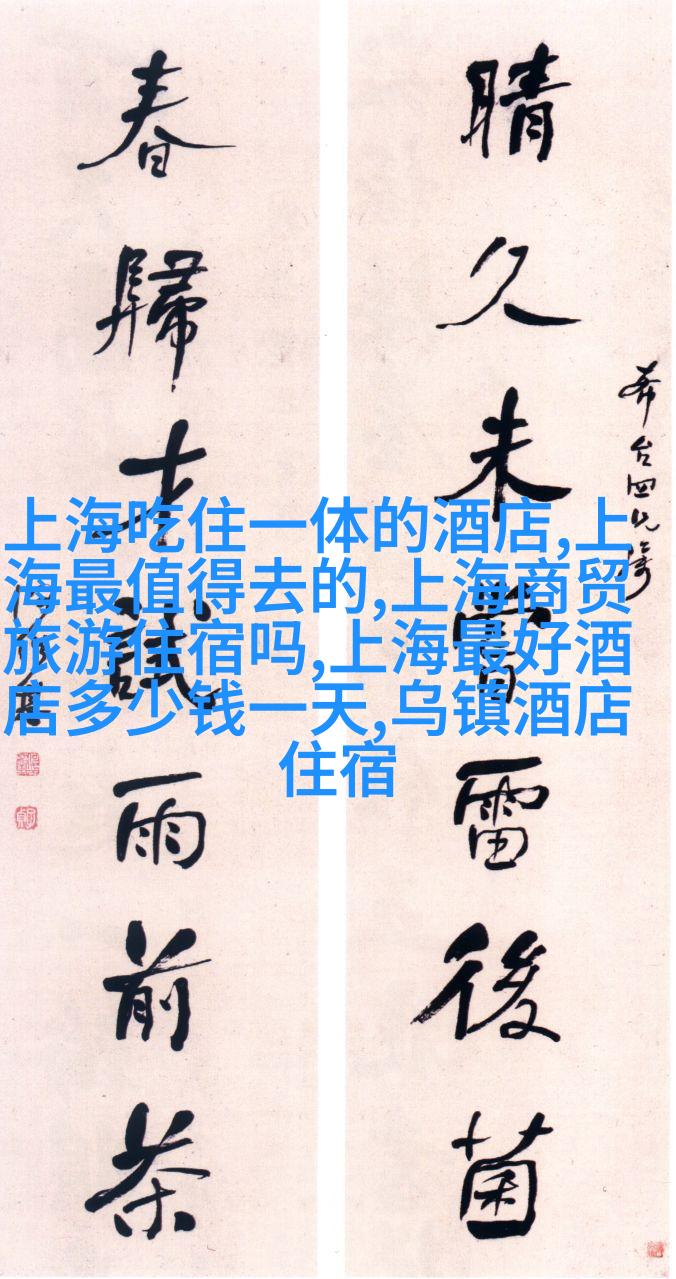 晴久未嘗雷後菌
台四兄
春歸才試雨前茶
上海吃住一体的酒店,上
海最值得去的,上海商贸
旅游住宿吗,上海最好酒
店多少钱一天,乌镇酒店
住宿